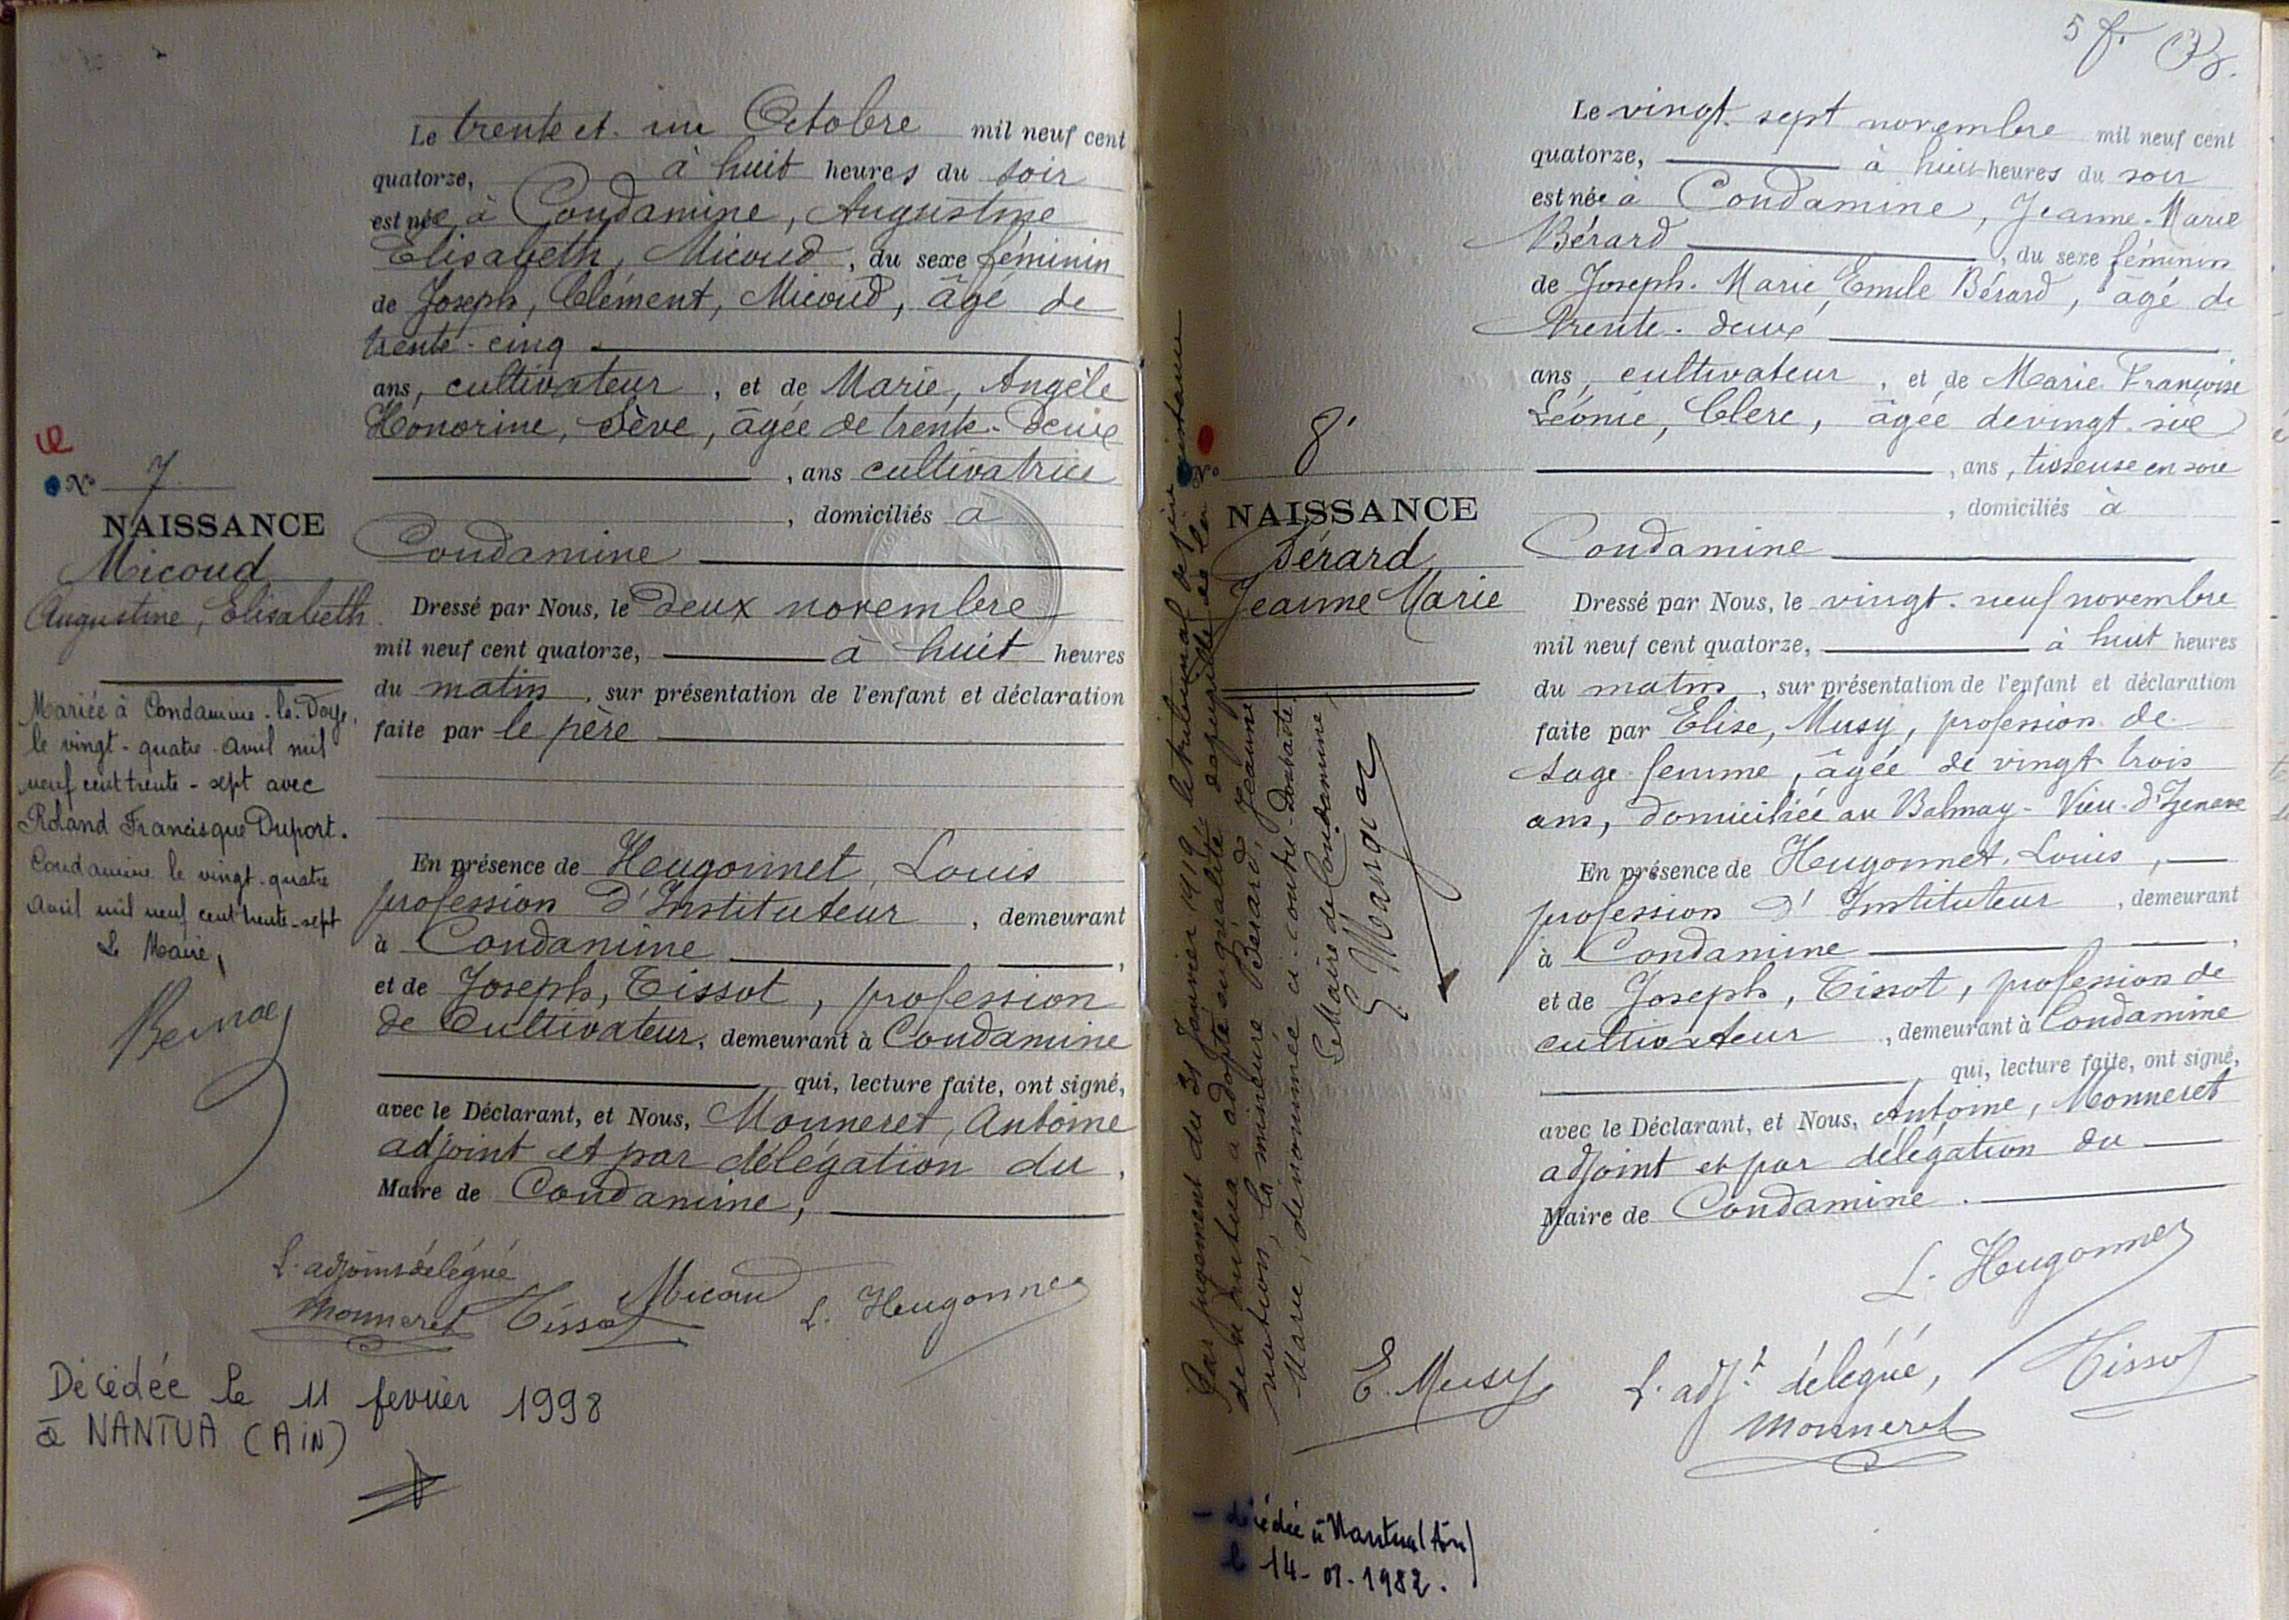 Le trente et un Octobre mil neuf cent
quatorze, à huit heures du soir
est née à Condamine, Augustine
Elisabeth, Micoud, du sexe féminin
de Joseph, Clément, Micoud, âgé de
trente-cinq
ans, cultivateur, et de Marie, Angèle
Honorine, Sève, âgée de trente-deux
, ans cultivatrice
, domiciliés à
Condamine
Dressé par Nous, le deux novembre
mil neuf cent quatorze, à huit heures
du matin, sur présentation de l'enfant et déclaration
faite par le père
En présence de Hugonnet, Louis
profession d'Instituteur, demeurant
à Condamine,
et de Joseph, Tissot, profession
de Cultivateur, demeurant à Condamine
qui, lecture faite, ont signé,
avec le Déclarant, et Nous, Monneret, Antoine
adjoint et par délégation du,
Maire de Condamine,
L. adjoint délégué
Monneret Tissot Micoud L. Hugonnet
Nº 7
NAISSANCE
Micoud
Augustine, Elisabeth
Mariée à Condamine-la-Doye,
le vingt-quatre avril mil
neuf cent trente-sept avec
Roland Francisque Duport.
Condamine le vingt-quatre
avril mil neuf cent trente-sept
Le Maire,
Décédée le 11 fevrier 1998
à NANTUA (AIN)
5 f.
Le vingt-sept novembre mil neuf cent
quatorze, à huit heures du soir
est née à Condamine, Jeanne-Marie
Bérard, du sexe féminin
de Joseph-Marie Emile Bérard, âgé de
trente-deux
ans, cultivateur, et de Marie Françoise
Léonie, Clerc, âgée de vingt-six
, ans, tisseuse en soie
, domiciliés à
Condamine
Dressé par Nous, le vingt-neuf novembre
mil neuf cent quatorze, à huit heures
du matin, sur présentation de l'enfant et déclaration
faite par Elise, Musy, profession de
sage femme, âgée de vingt trois
ans, domiciliée au Balmay-Vieu-d'Izenave
En présence de Hugonnet, Louis,
profession d'Instituteur, demeurant
à Condamine,
et de Joseph, Tissot, profession de
cultivateur, demeurant à Condamine
qui, lecture faite, ont signé,
avec le Déclarant, et Nous, Antoine, Monneret
adjoint et par délégation du
Maire de Condamine.
L. Hugonnet
E. Musy L. adjt délégué, Tissot
Monneret
Nº 8
NAISSANCE
Bérard
Jeanne Marie
Par jugement du 31 Janvier 1919, le tribunal de 1ère instance
de Nantua a adopté en qualité de pupille de la
nation, la mineure Bérard, Jeanne
Marie, dénommée ci-contre.
Le Maire de Condamine,
- décédée à Nantua (Ain)
le 14-01-1982.